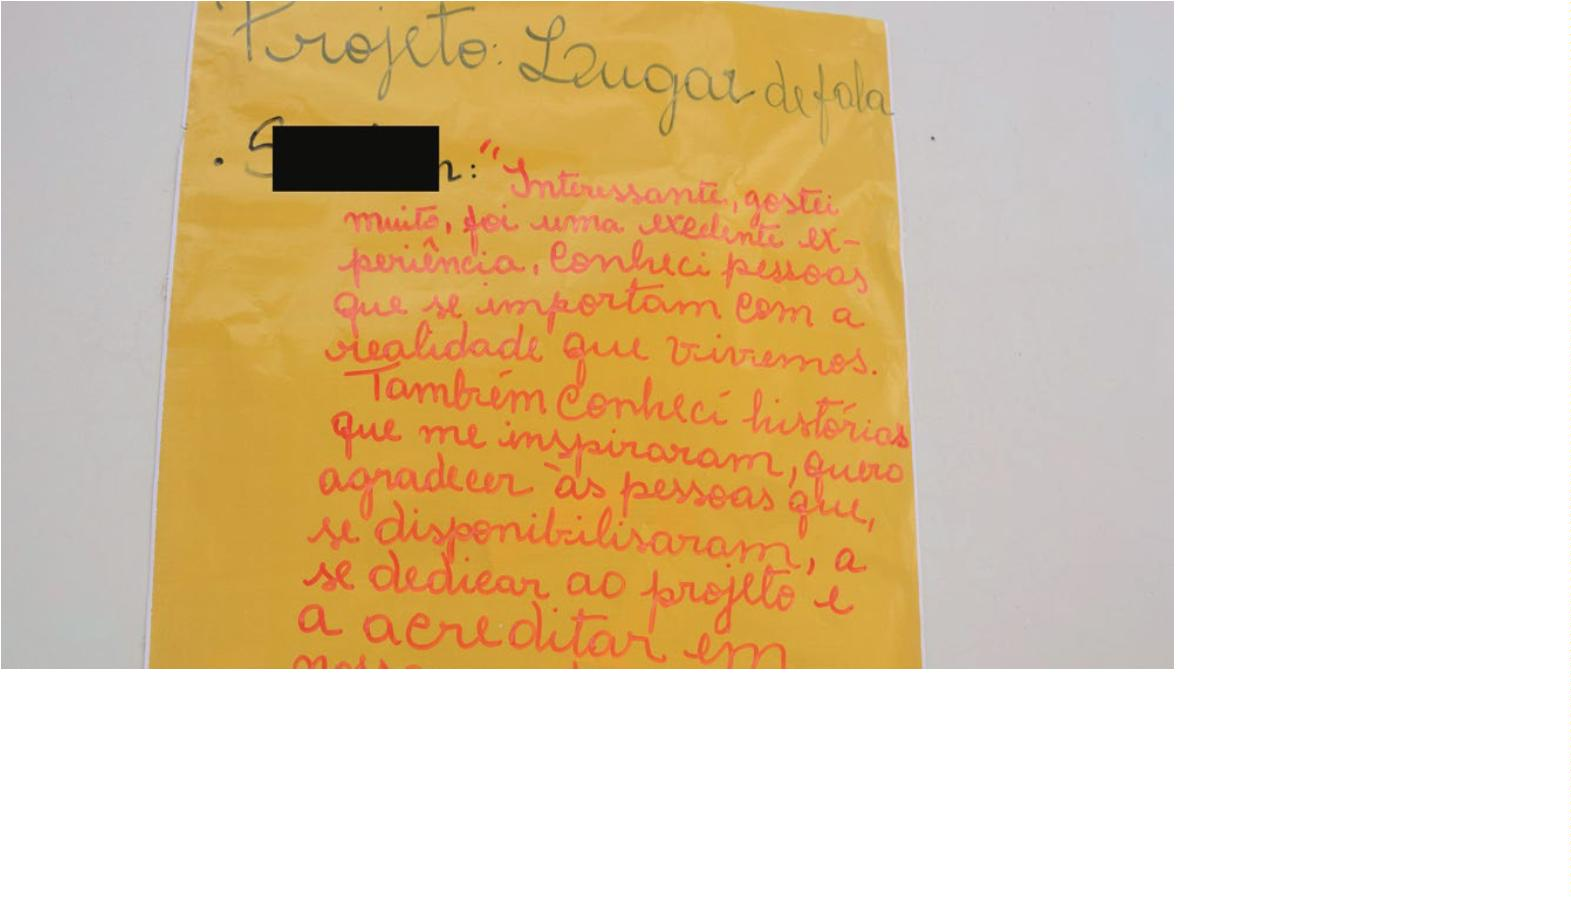 Projeto: Lugar de fala
"Interessante, gostei
muito, foi uma exelente ex-
periência, Conheci pessoas
que se importam com a
realidade que vivemos.
Também conhecí histórias
que me inspiraram, quero
agradecer às pessoas que,
se disponibilisaram, a
se dedicar ao projeto e
a acreditar em